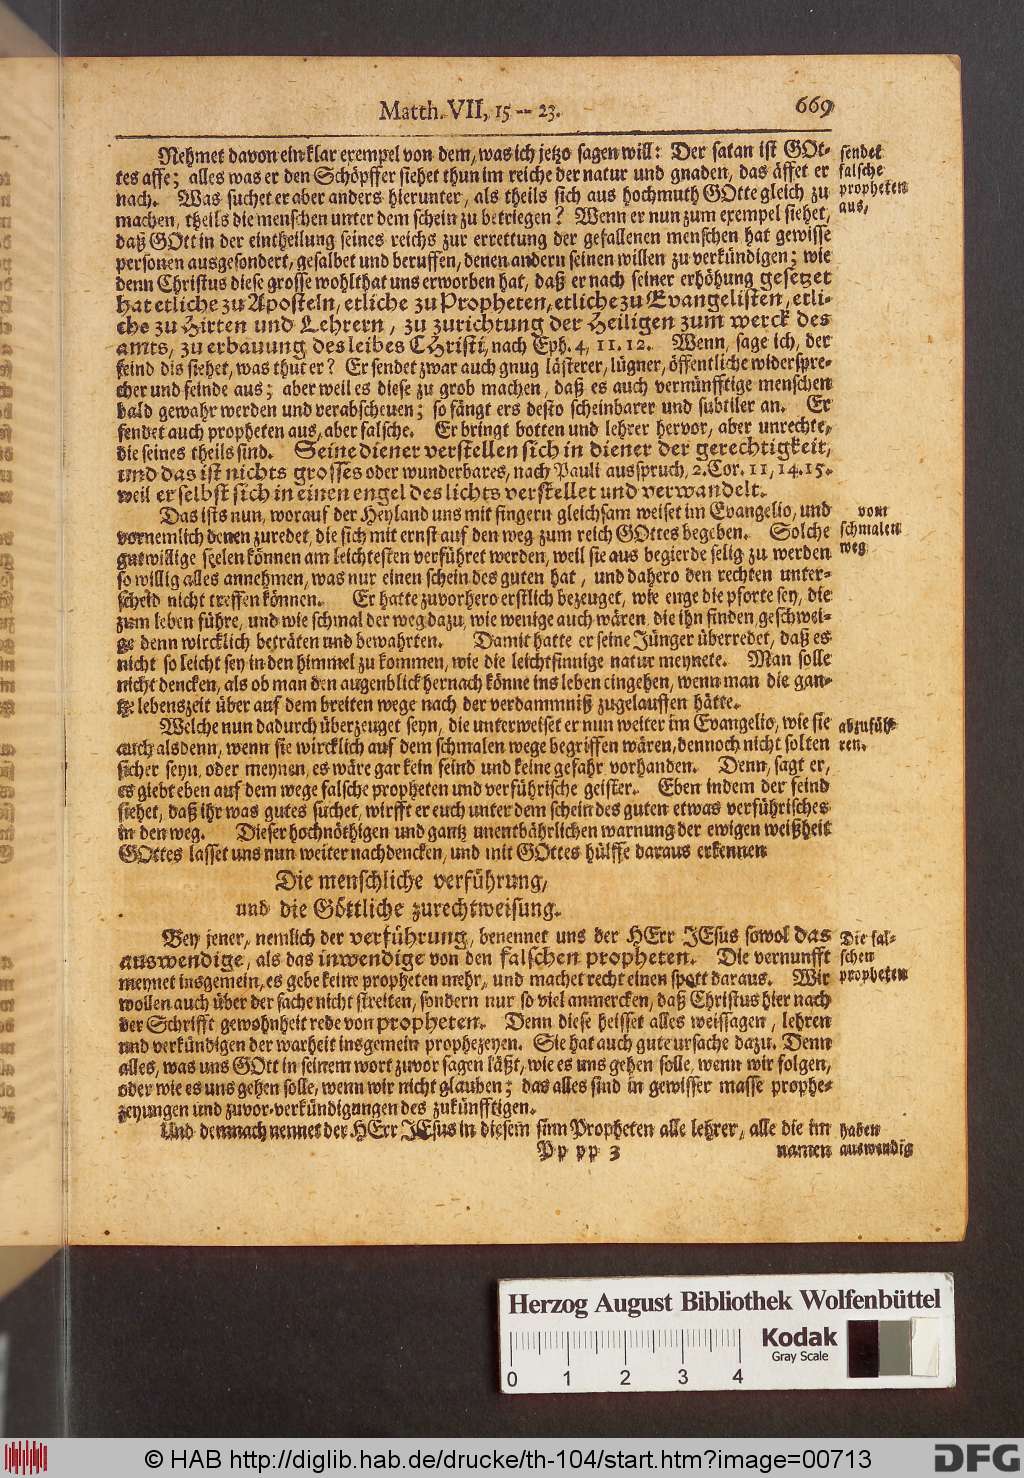 Matth. VII, 15 -- 23. 669
Nehmet davon ein klar exempel von dem, was ich jetzo sagen will: Der satan ist GOt-
tes affe; alles was er den Schöpffer siehet thun im reiche der natur und gnaden, das äffet er
nach. Was suchet er aber anders hierunter, als theils sich aus hochmuth GOtte gleich zu
machen, theils die menschen unter dem schein zu betriegen? Wenn er nun zum exempel siehet,
daß GOtt in der eintheilung seines reichs zur errettung der gefallenen menschen hat gewisse
personen ausgesondert, gesalbet und beruffen, denen andern seinen willen zu verkündigen; wie
denn Christus diese grosse wohlthat uns erworben hat, daß er nach seiner erhöhung gesetzet
hat etliche zu Aposteln, etliche zu Propheten, etliche zu Evangelisten, etli-
che zu Hirten und Lehrern, zu zurichtung der Heiligen zum werck des
amts, zu erbauung des leibes CHristi, nach Eph. 4, 11. 12. Wenn, sage ich, der
feind dis siehet, was thut er? Er sendet zwar auch gnug lästerer, lügner, öffentliche widerspre-
cher und feinde aus; aber weil es diese zu grob machen, daß es auch vernünfftige menschen
bald gewahr werden und verabscheuen; so fängt ers desto scheinbarer und subtiler an. Er
sendet auch propheten aus, aber falsche. Er bringt botten und lehrer hervor, aber unrechte,
die seines theils sind. Seine diener verstellen sich in diener der gerechtigkeit,
und das ist nichts grosses oder wunderbares, nach Pauli ausspruch, 2. Cor. 11, 14. 15.
weil er selbst sich in einen engel des lichts verstellet und verwandelt.
sendet
falsche
propheten
aus,
Das ists nun, worauf der Heyland uns mit fingern gleichsam weiset im Evangelio, und
vornemlich denen zuredet, die sich mit ernst auf den weg zum reich GOttes begeben. Solche
gutwillige seelen können am leichtesten verführet werden, weil sie aus begierde selig zu werden
so willig alles annehmen, was nur einen schein des guten hat, und dahero den rechten unter-
scheid nicht treffen können. Er hatte zuvorhero erstlich bezeuget, wie enge die pforte sey, die
zum leben führe, und wie schmal der weg dazu, wie wenige auch wären, die ihn finden, geschwei-
ge denn wircklich beträten und bewahrten. Damit hatte er seine Jünger überredet, daß es
nicht so leicht sey in den himmel zu kommen, wie die leichtsinnige natur meynete. Man solle
nicht dencken, als ob man den augenblick hernach könne ins leben eingehen, wenn man die gan-
tze lebenszeit über auf dem breiten wege nach der verdammniß zugelauffen hätte.
vom
schmalen
weg
Welche nun dadurch überzeuget seyn, die unterweiset er nun weiter im Evangelio, wie sie
auch alsdenn, wenn sie wircklich auf dem schmalen wege begriffen wären, dennoch nicht solten
sicher seyn, oder meynen, es wäre gar kein feind und keine gefahr vorhanden. Denn, sagt er,
es giebt eben auf dem wege falsche propheten und verführische geister. Eben indem der feind
siehet, daß ihr was gutes suchet, wirfft er euch unter dem schein des guten etwas verführisches
in den weg. Dieser hochnöthigen und gantz unentbährlichen warnung der ewigen weißheit
GOttes lasset uns nun weiter nachdencken, und mit GOttes hülffe daraus erkennen
abzufüh-
ren.
Die menschliche verführung,
und die Göttliche zurechtweisung.
Bey jener, nemlich der verführung, benennet uns der HErr JEsus sowol das
auswendige, als das inwendige von den falschen propheten. Die vernunfft
meynet insgemein, es gebe keine propheten mehr, und machet recht einen spott daraus. Wir
wollen auch über der sache nicht streiten, sondern nur so viel anmercken, daß Christus hier nach
der Schrifft gewohnheit rede von propheten. Denn diese heisset alles weissagen, lehren
und verkündigen der warheit insgemein prophezeyen. Sie hat auch gute ursache dazu. Denn
alles, was uns GOtt in seinem wort zuvor sagen läßt, wie es uns gehen solle, wenn wir folgen,
oder wie es uns gehen solle, wenn wir nicht glauben; das alles sind in gewisser masse prophe-
zeyungen und zuvor-verkündigungen des zukünfftigen.
Die fal-
schen
propheten
Und demnach nennet der HErr JEsus in diesem sinn Propheten alle lehrer, alle die im
haben
auswendig
Pp pp 3 namen
Herzog August Bibliothek Wolfenbüttel
Kodak
Gray Scale
0 1 2 3 4
© HAB http://diglib.hab.de/drucke/th-104/start.htm?image=00713
DFG